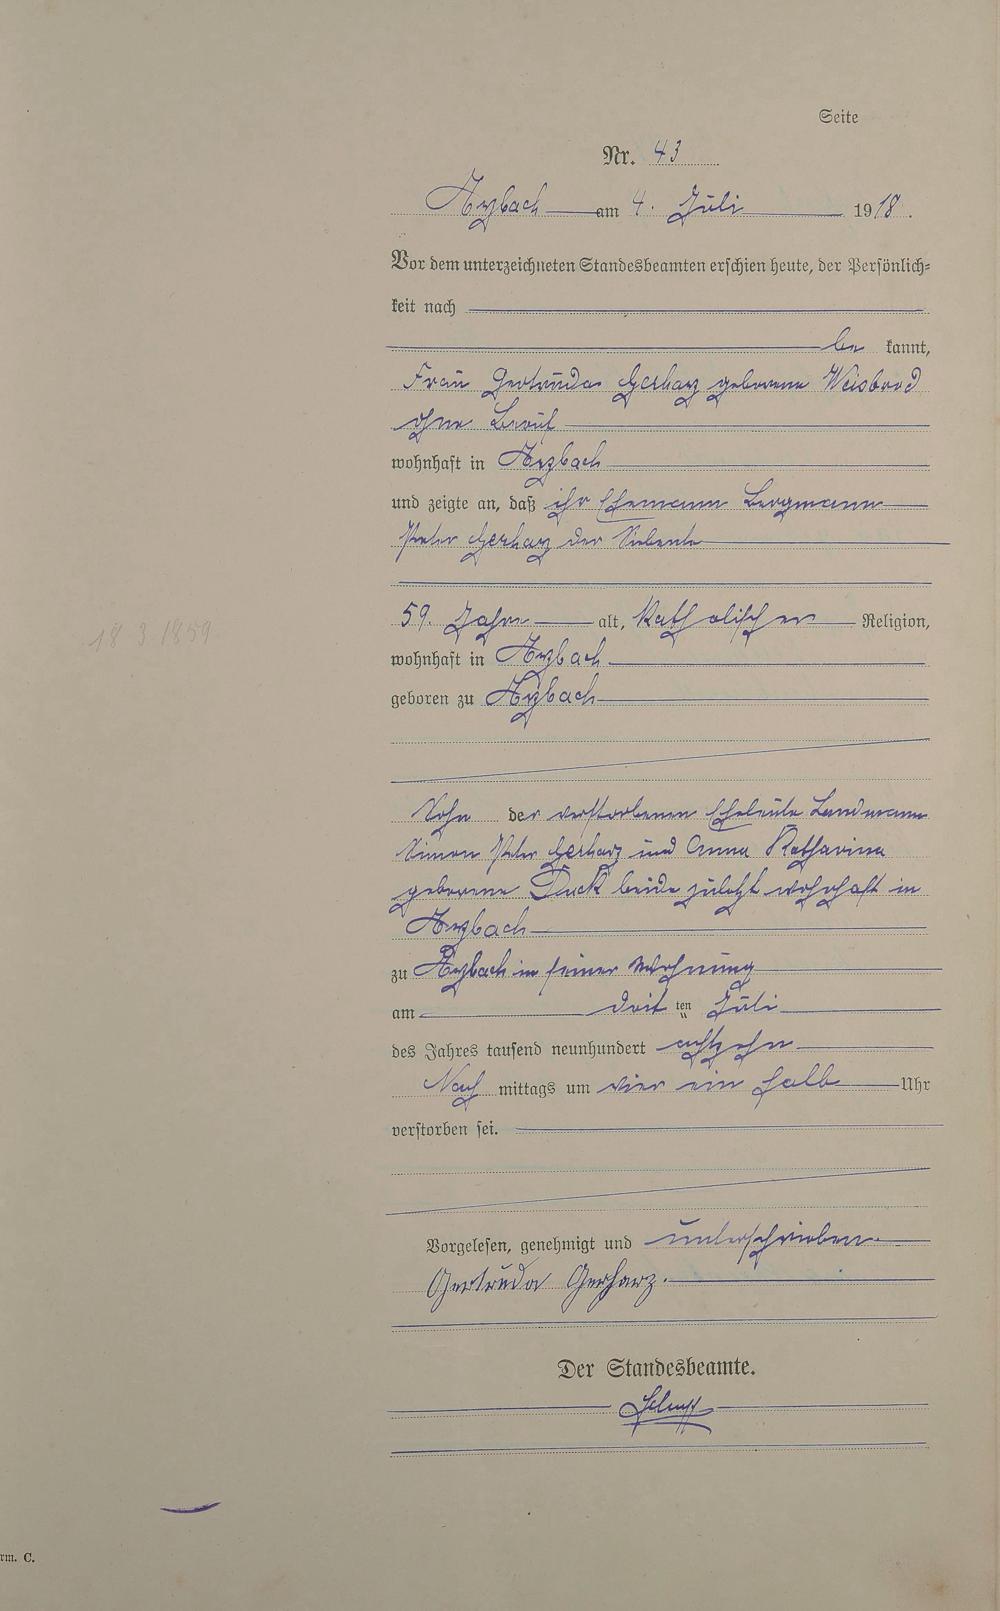 Seite
Nr. 43
Arzbach am 4. Juli 1918.
Vor dem unterzeichneten Standesbeamten erschien heute, der Persönlich=
keit nach
be kannt,
Frau Gertruda Gerharz geborene Weisbrod
ohne Beruf
wohnhaft in Arzbach
und zeigte an, daß ihr Ehemann Bergmann
Peter Gerharz der Siebente
59. Jahre alt, Katholischer Religion,
18 3 1859
wohnhaft in Arzbach
geboren zu Arzbach
Sohn der verstorbenen Eheleute Landmann
Simon Peter Gerharz und Anna Katharina
geborene Duck beide zuletzt wohnhaft in
Arzbach
zu Arzbach in seiner Wohnung
am drit ten Juli
des Jahres tausend neunhundert achtzehn
Nach mittags um vier ein halb Uhr
verstorben sei.
Vorgelesen, genehmigt und unterschrieben.
Gertruda Gerharz.
Der Standesbeamte.
rm. C.